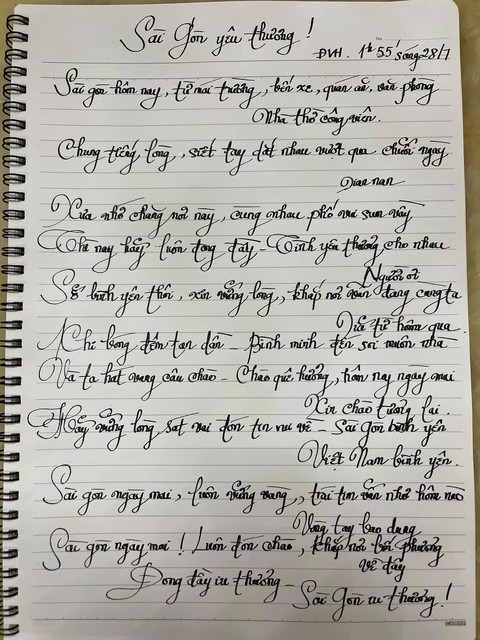 Sài Gòn yêu thương !
ĐVH . 1h 55' sáng 28/7
Sài gòn hôm nay, từ mái trường, bến xe, quán ăn, văn phòng
Nhà thờ công viên.
Chung tiếng lòng, siết tay dắt nhau vượt qua chuỗi ngày
Gian nan
Xưa nhớ chăng nơi này, cùng nhau phố vui sum vầy
Thì nay hãy luôn đong đầy - Tình yêu thương cho nhau
Người ơi
Sẽ bình yên thôi, xin vững lòng, khắp nơi vẫn đang cùng ta
từ hôm qua.
Chỉ bóng đêm tan dần - Bình minh đến soi muôn nhà
Và ta hát vang câu chào - Chào quê hương, hôm nay ngày mai
Xin chào tương lai.
Hãy vững lòng, sát vai đón tin vui về - Sài Gòn bình yên
Việt Nam bình yên.
Sài gòn ngày mai, luôn vững vàng, trái tim vẫn như hôm nào
Vòng tay bao dung
Sài gòn ngày mai ! Luôn đón chào, khắp nơi bốn phương
về đây
Đong đầy iu thương -
Sài Gòn iu thương !